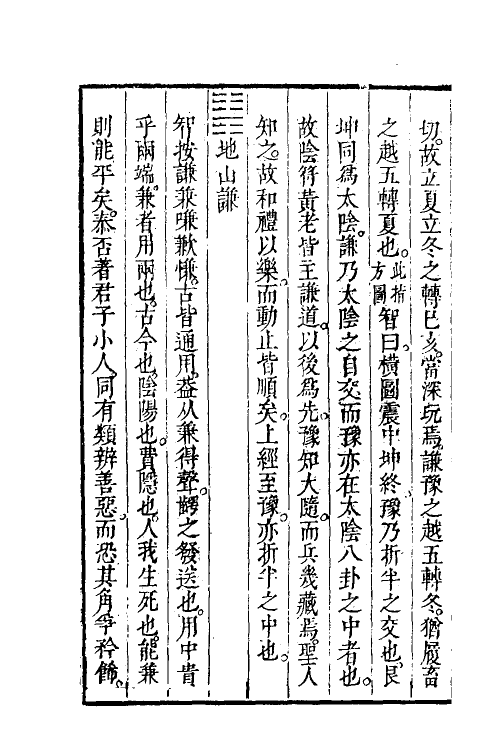 切。故立夏立冬之轉巳亥。當深玩焉。謙豫之越五轉冬。猶履畜
之越五轉夏也。此指方圖智曰。橫圖震中坤終。豫乃折半之交也。艮
坤同爲太陰。謙乃太陰之自交。而豫亦在太陰八卦之中者也。
故陰符黃老皆主謙道。以後爲先。豫知大隨。而兵幾藏焉。聖人
知之。故和禮以樂。而動止皆順矣。上經至豫。亦折半之中也。
䷎地山謙
智按謙兼嗛歉慊。古皆通用。葢从兼得聲。齶之發送也。用中貴
乎兩端。兼者用兩也。古今也。陰陽也。費隱也。人我生死也。能兼
則能平矣。泰否著君子小人。同有類辨善惡。而恐其角爭矜飾。